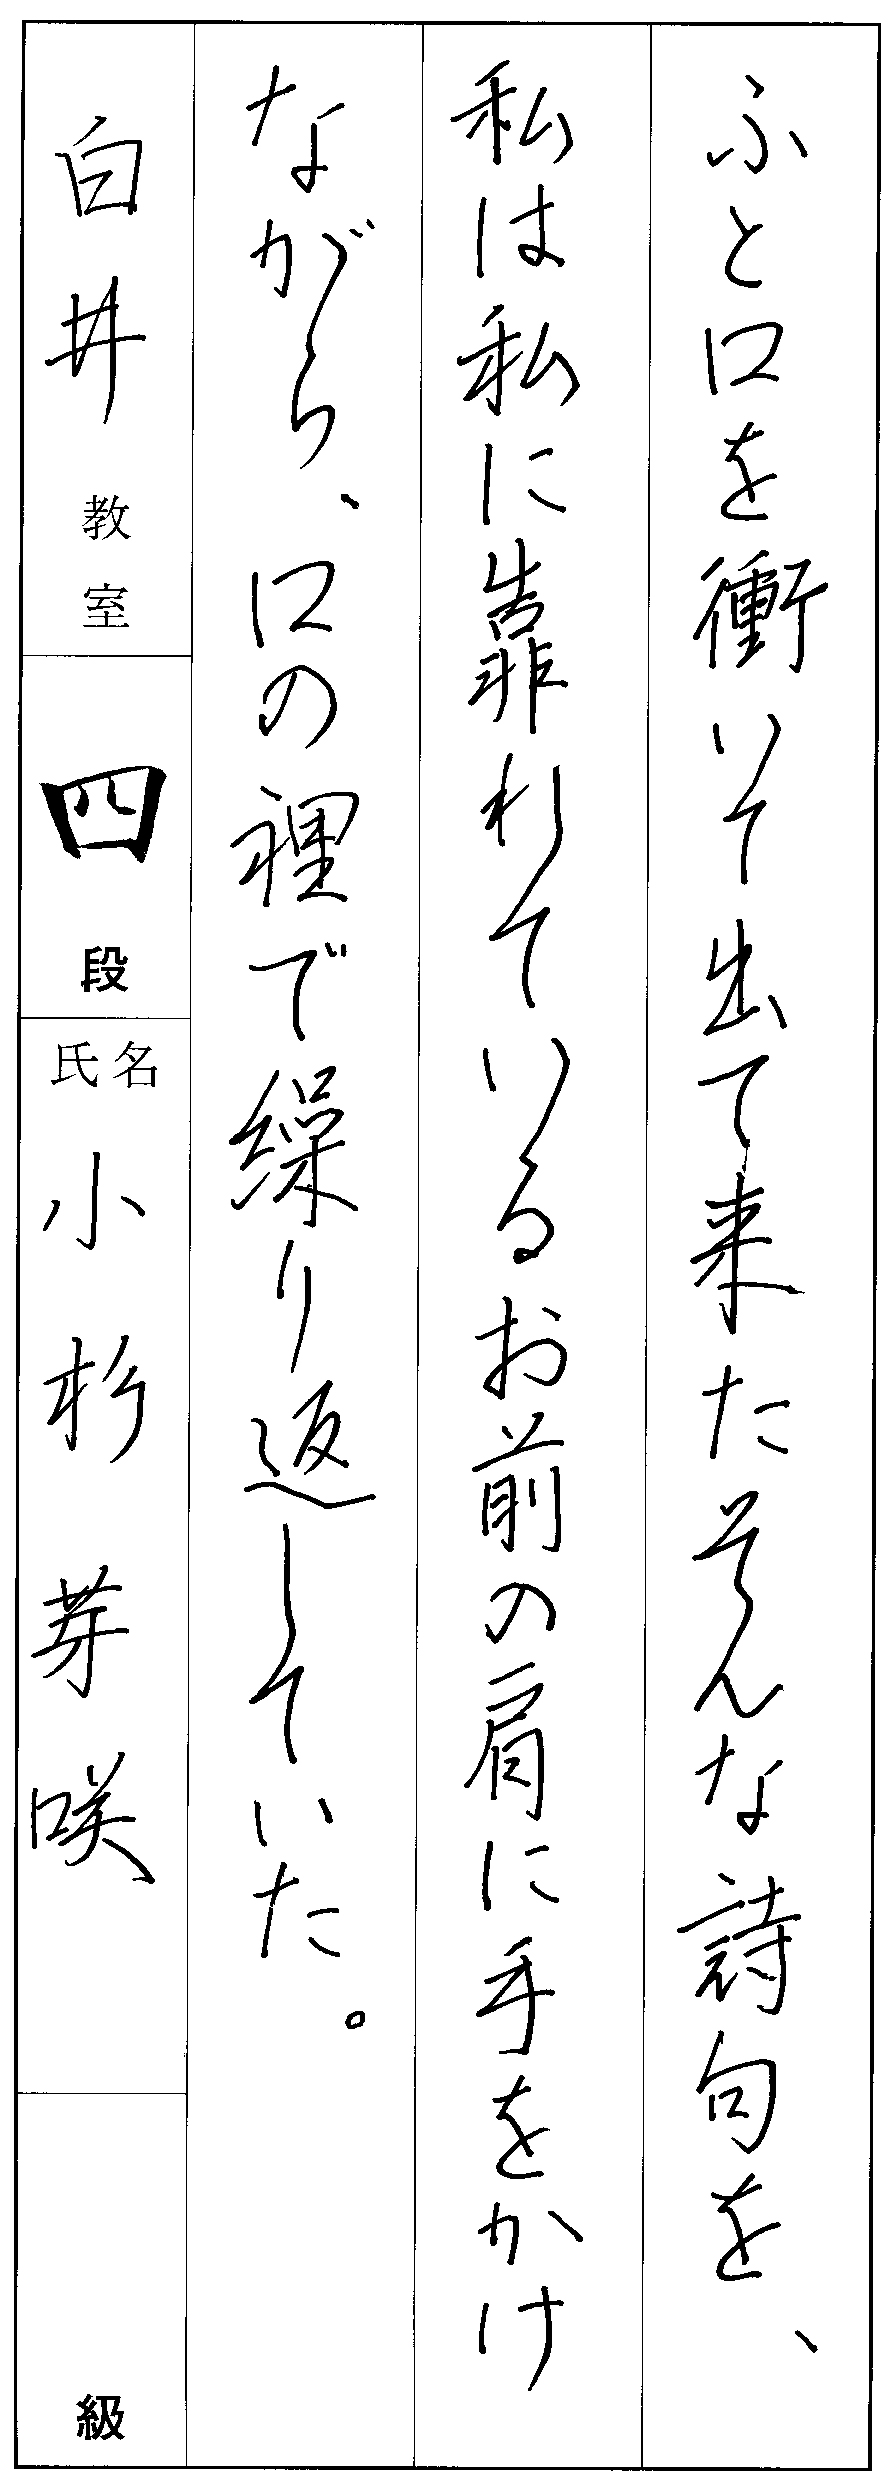 ふと口を衝いて出て来たそんな詩句を、
私は私に靠れているお前の肩に手をかけ
ながら、口の裡で繰り返していた。
白井教室
四段
氏名 小杉芽咲
級